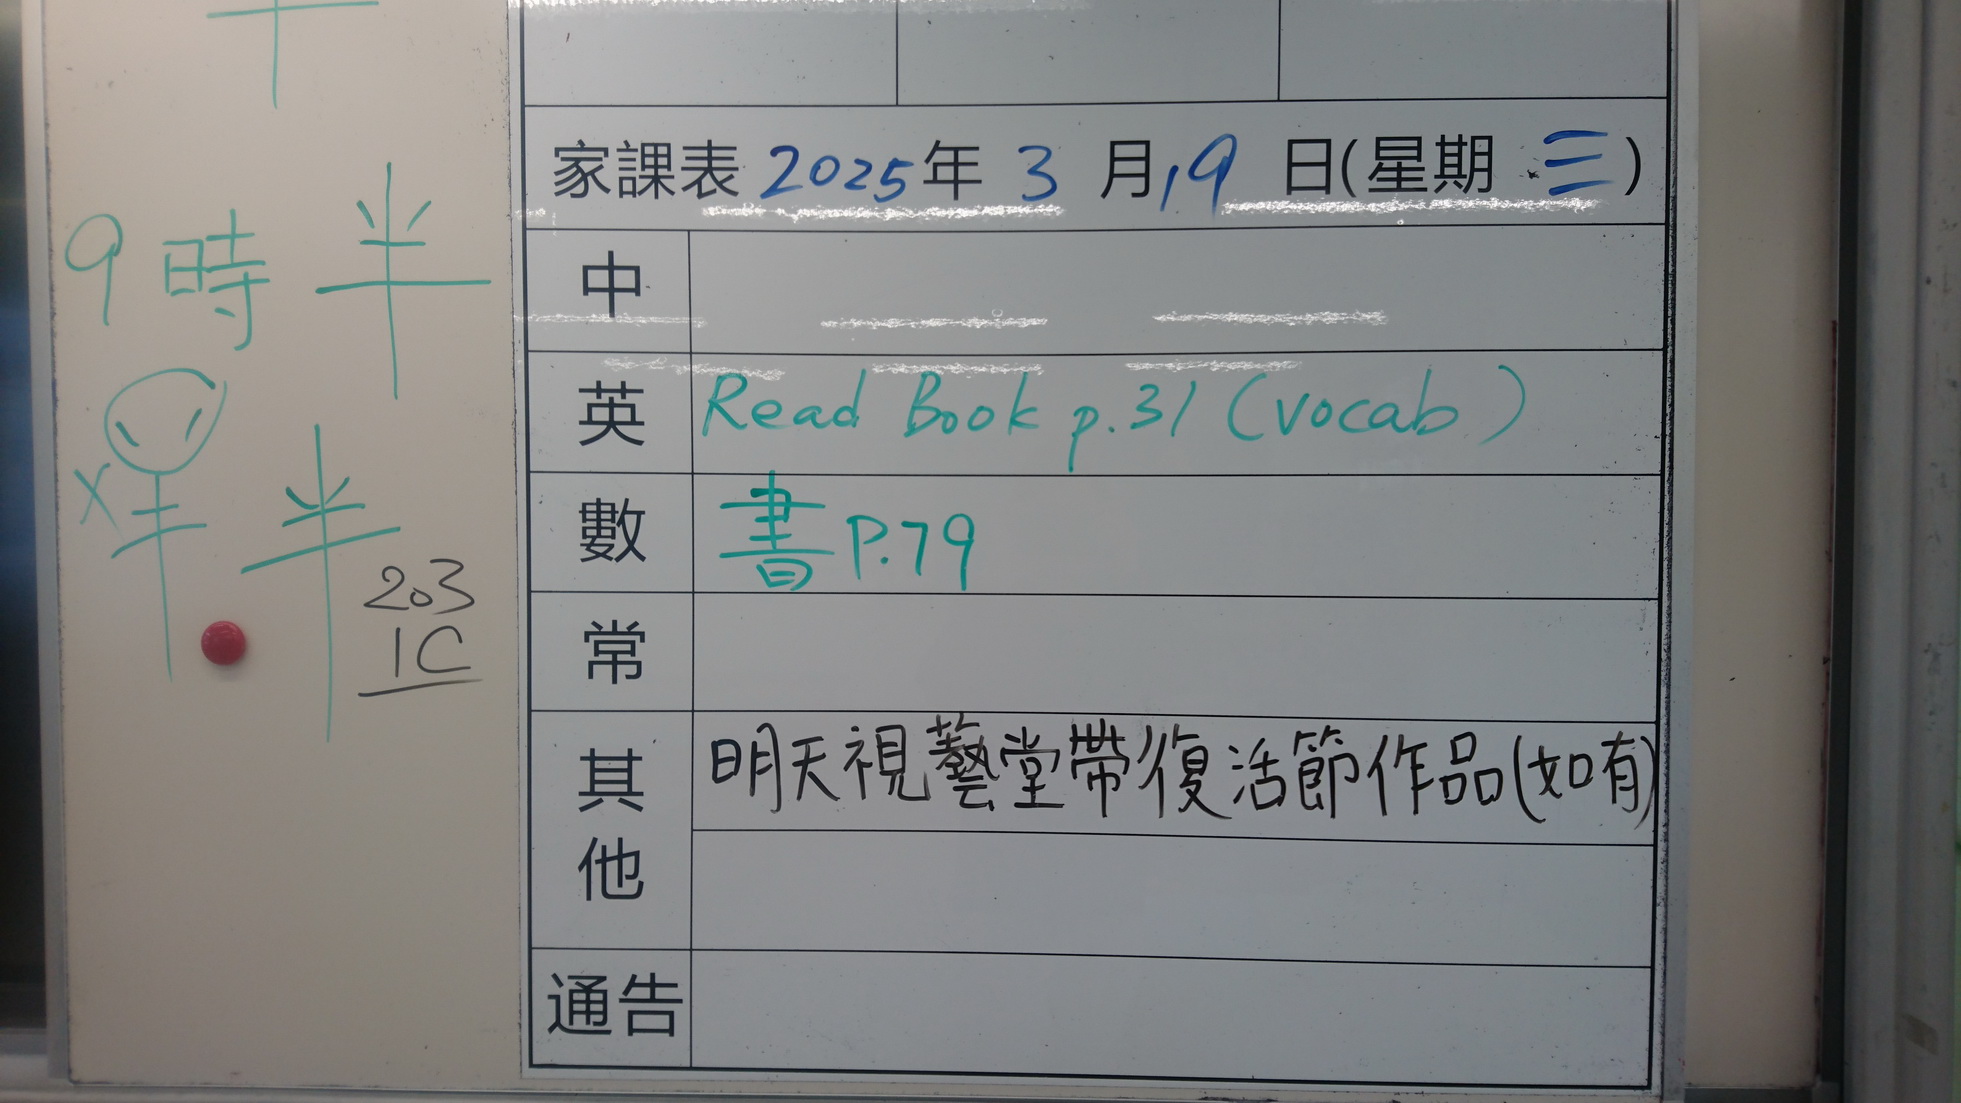 家課表 2025年 3 月 19 日(星期 三)
中
英 Read Book p.31 (vocab)
數 書 P.79
常
其他 明天視藝堂帶復活節作品(如有)
通告
9 時 半
半
203
1C